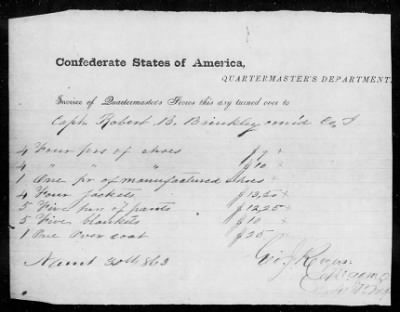 Confederate States of America,
QUARTERMASTER'S DEPARTMENT.
Invoice of Quartermaster's Stores this day turned over to
Capt. Robert B. Brinkley com'd Co I
4 Four prs of shoes $9
4 " " " " $10
1 One pr of manufactured shoes
4 Four jackets $13,50
5 Five prs of pants $12,25
5 Five blankets $10
1 One Over coat $25
30th 863